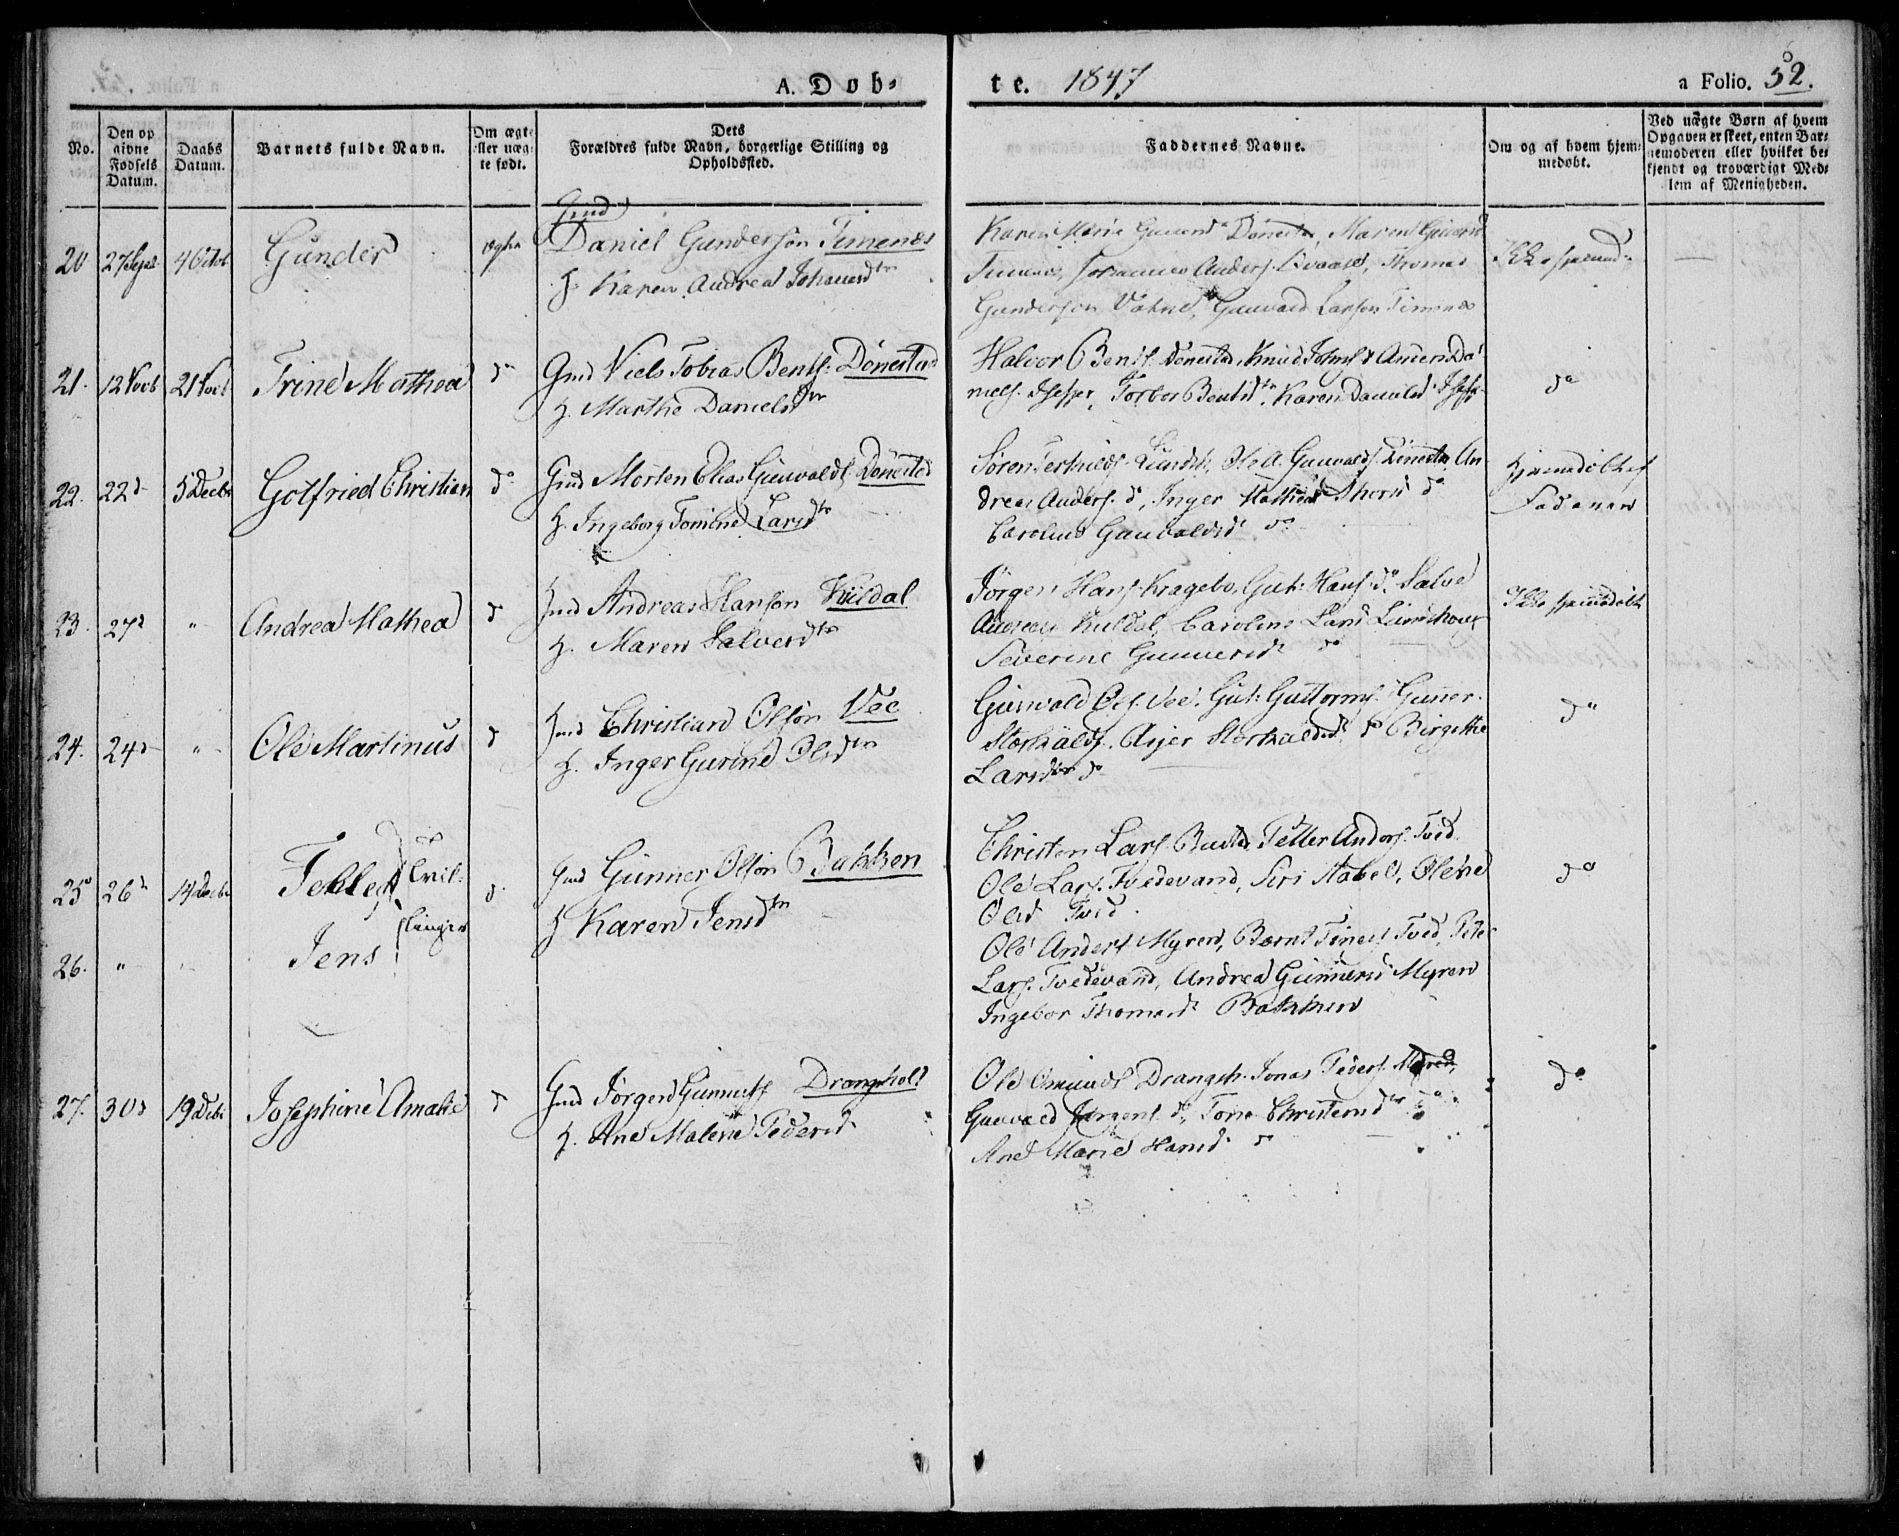 A. Døb=
te. 1847
a Folio. 52.
No.
Den op
givne
Fødsels
Datum.
Daabs
Datum.
Barnets fulde Navn.
Om ægt=
eller uæg=
te født.
Dets
Forældres fulde Navn, borgerlige Stilling og
Opholdssted.
Faddernes Navne.
Om og af hvem hjem=
medøbt.
Ved uægte Børn af hvem
Opgaven er skeet, enten Bar=
nemoderen eller hvilket be=
kjendt og troværdigt Med=
lem af Menigheden.
20 27 Sept 4 Octob Gunder ægte
Gmd
Daniel Gunderson Timenes
H. Karen Andrea Johansdtr
Karen Marie Dønestad, Maren
Timenes, Johannes Anders. Kvaase, Thomas
Gunderson Gunvald Larson Timenes
Ikke hjemmd.
21. 12 Novb 21 Novb Trine Mathea do
Gmd Niels Tobias Bents. Dønestad
H. Marthe Danielsdtr
Halvor Bents. Dønestad, Knud Johns. Anders Da
niels. Torbor Bentsdtr. Karen Danielsd.
do
22. 22 d 5 Decbr Gotfried Christian do
Gmd Morten Elias Gunvalds. Dønestad
H. Ingeborg Tomine Larsdtr
Søren Terkilds. Ole A. Gunvalds. Dønestad, An
dreas Anders. do, Inger Mathea do
Caroline Gunvaldsd. do
Hjemmedøbt af
Faderen
23. 27 d " Andrea Mathea d
Gmd Andreas Hanson Kuldal
H. Maren Salvesdtr
Jørgen Hans. Kragebo, Gut. Hans. do Salve
Andreas. Kuldal, Caroline Larsd.
Severine Gunnersd. do
Ikke hjemmedøbt
24. 24 d " Ole Martinus d
Gmd Christian Olson Vee
H. Inger Gurine Olsdtr
Gunvald Ols. Vee. Gut. Guttorms. Gunner
Storkalds. Asjer Storkaldsd. do Birgitthe
Larsdtr do
do
25 26 d 14 Decbr Tellef Tvil=
26. " " Jens linger
d
Gmd Gunner Olson Bakken
H. Karen Jensdtr
Christen Lars. Tellef Anders. Tved
Ole Lars. Tvedevand, Siri Stabel, Olene
Olsd. Tved.
Ole Anders. Myren, Bernt Tved, Peter
Lars. Tvedevand, Andrea Gunnersd. Myren
Ingebor Thomasd. Bakken
do
27. 30 d 19 Decbr Josephine Amalie d
Gmd Jørgen Gunnufs. Drangsholt
H. Ane Malene Pedersd.
Ole Omunds. Drangsh. Jonas Peders.
Gunvald Jørgens. do, Tone Christensdtr
Ane Marie Hansd. do
do